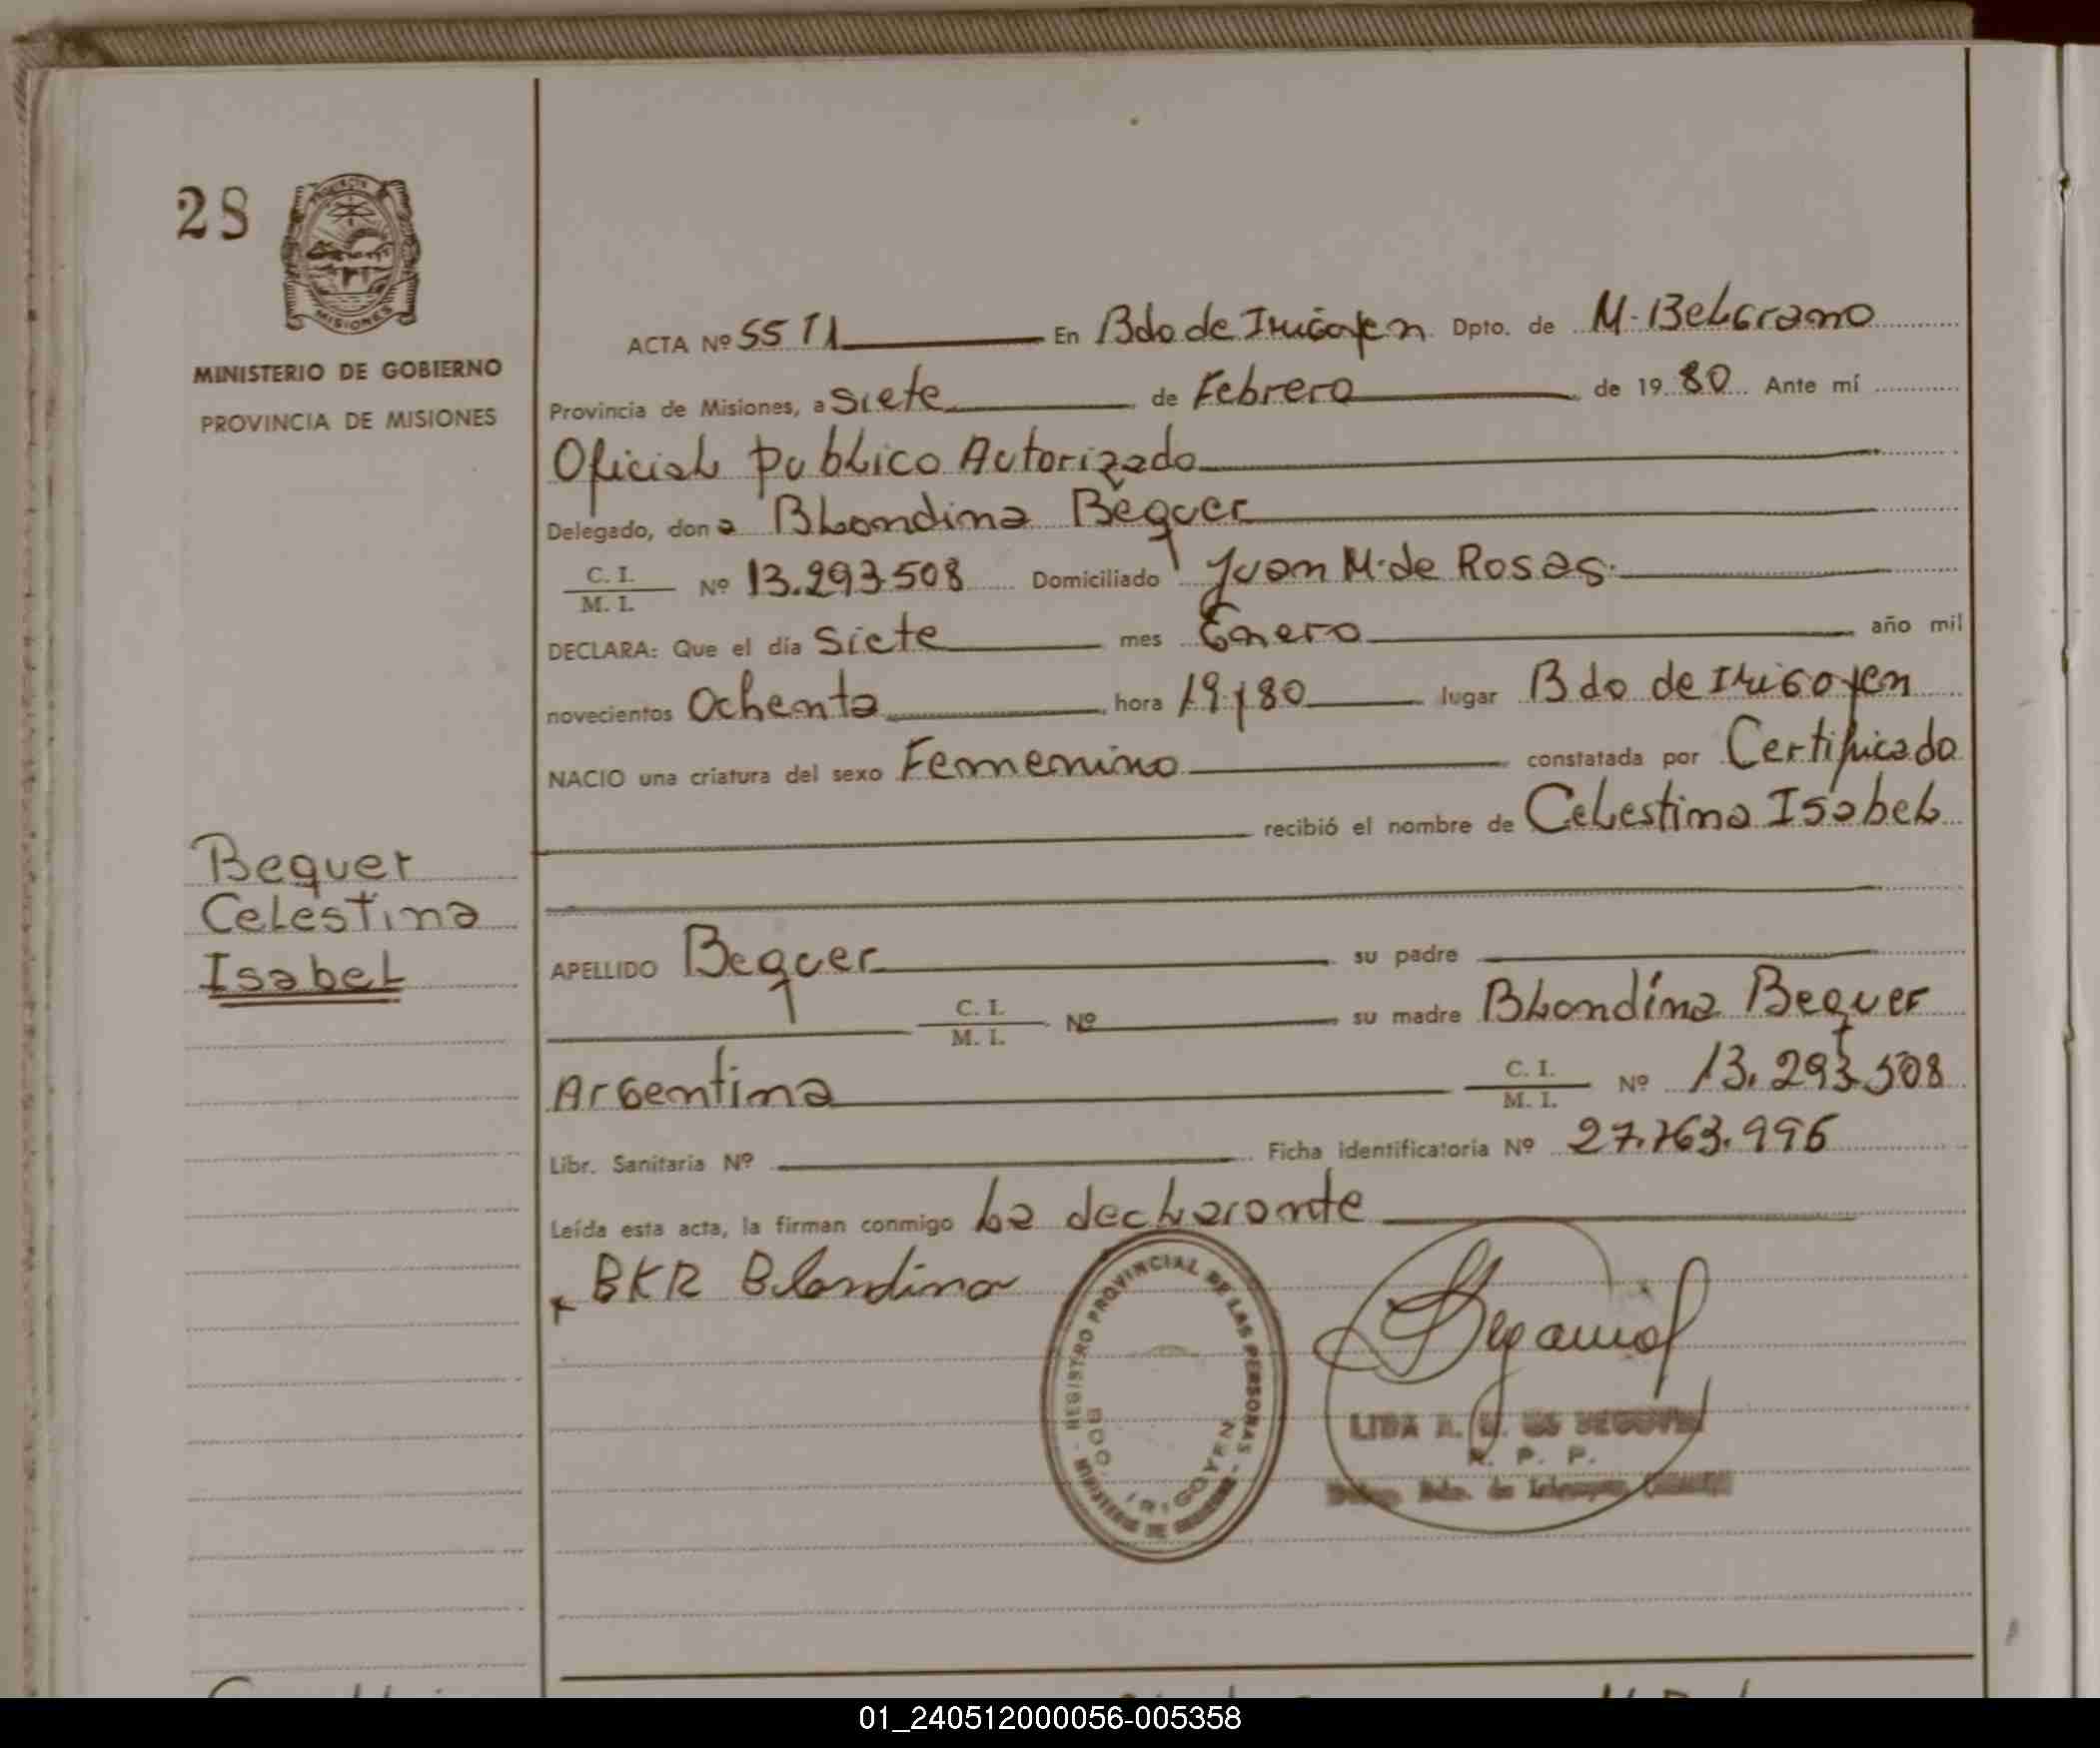 28
PROVINCIA
MISIONES
MINISTERIO DE GOBIERNO
PROVINCIA DE MISIONES
Bequer
Celestina
Isabel
ACTA Nº 55 T1 En Bdo de Irigoyen Dpto. de M. Belgrano
Provincia de Misiones, a siete de Febrero de 1980 Ante mí
Oficial publico Autorizado
Delegado, don a Blondina Bequer
C. I. / M. I. Nº 13.293.508 Domiciliado Juan M. de Rosas.
DECLARA: Que el día siete mes Enero año mil
novecientos Ochenta hora 19,80 lugar Bdo de Irigoyen
NACIO una criatura del sexo Femenino constatada por Certificado
recibió el nombre de Celestina Isabel
APELLIDO Bequer su padre
C. I. / M. I. Nº su madre Blondina Bequer
Argentina C. I. / M. I. Nº 13.293.508
Libr. Sanitaria Nº Ficha identificatoria Nº 27.763.996
Leída esta acta, la firman conmigo La declarante
x BKR Blondina
REGISTRO PROVINCIAL DE LAS PERSONAS - MINISTERIO DE GOBIERNO -
BDO. IRIGOYEN
R. P. P.
01_240512000056-005358